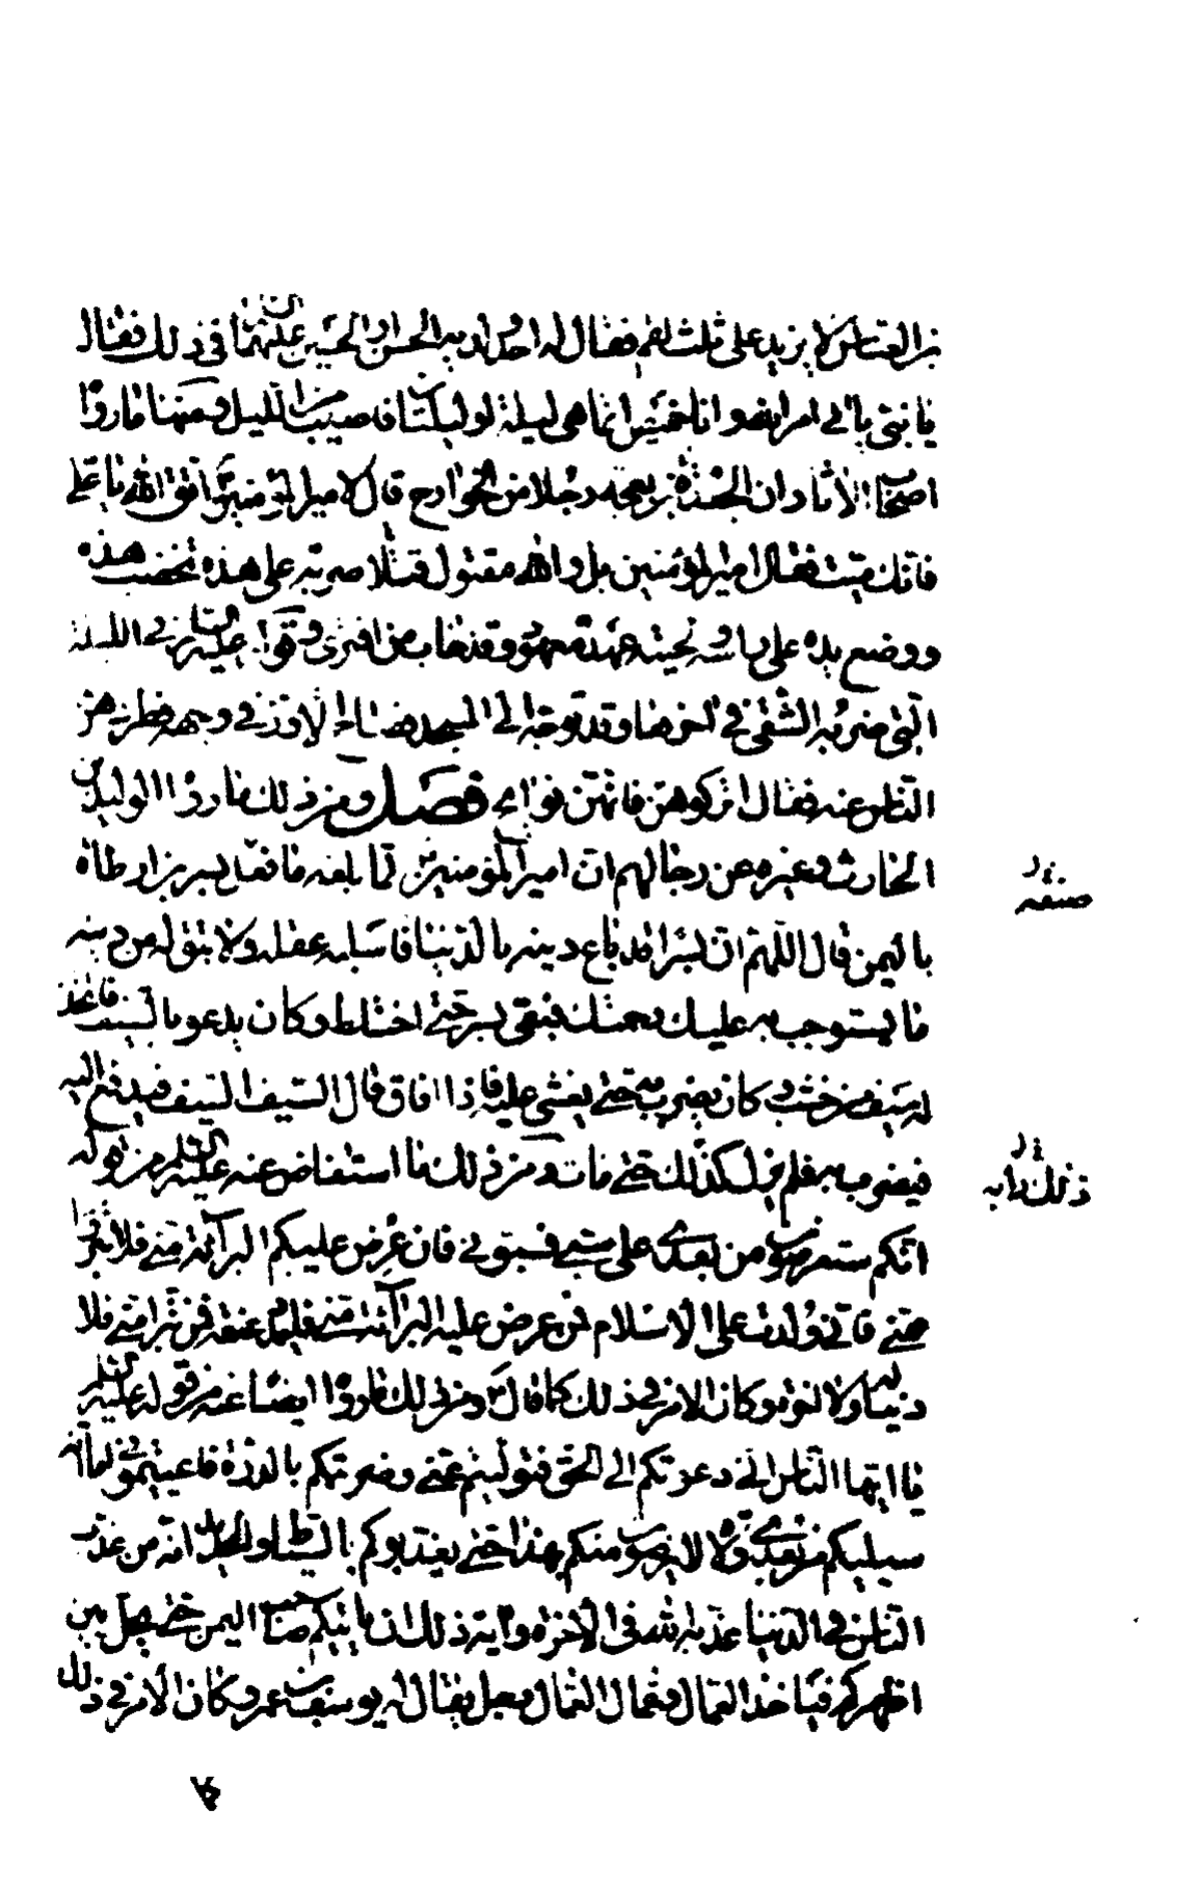 بن العباس لا يزيد على ثلث لقم فقال له احد ولديه الحسن او الحسين عليهما السلام في ذلك فقال
يا بنى ياتي امر الله وانا خميص انما هي ليلة او ليلتان فاصيب من الليل ومنها ما رواه
اصحاب الاثار ان الجعد بن بعجة رجلا من الخوارج قال لامير المؤمنين اتق الله يا على
فانك ميت فقال امير المؤمنين بل والله مقتول قتلا ضربة على هذه تخضب هذه
ووضع يده على راسه ولحيته عهد معهود وقد خاب من افترى وقوله عليه السلام في الليلة
التي ضربه الشقى في اخرها وقد توجه الى المسجد فصاح الاوز في وجهه فطردهن
الناس عنه فقال اتركوهن فانهن نوايح فصل ومن ذلك ما رواه الوليد بن
الحارث وغيره عن رجالهم ان امير المؤمنين لما بلغه ما فعل بسر بن ارطاة
باليمن قال اللهم ان بسرا قد باع دينه بالدنيا فاسلبه عقله ولا تبق له من دينه
ما يستوجب به عليك رحمتك فبقى بسر حتى اختلط وكان يدعو بالسيف فاتخذ
له سيف من خشب وكان يضرب به حتى يغشى عليه فاذا افاق قال السيف السيف فيدفع اليه
فيضرب به فلم يزل كذلك حتى مات ومن ذلك ما استفاض عنه عليه السلام من قوله
انكم ستعرضون من بعدي على سبي فسبوني فان عرض عليكم البراءة مني فلا تتبرؤا
مني فاني ولدت على الاسلام فمن عرض عليه البراءة مني فليمدد عنقه فمن تبرأ مني فلا
دنيا له ولا اخرة وكان الامر في ذلك كما قال ومن ذلك ما رووا ايضا عنه من قوله عليه السلام
يا ايها الناس اني دعوتكم الى الحق فتوليتم عني وضربتكم بالدرة فاعييتموني اما انه
سيليكم من بعدي ولاة لا يرضون منكم بهذا حتى يعذبوكم بالسياط والحديد انه من عذب
الناس في الدنيا عذبه الله في الاخرة واية ذلك ان ياتيكم صاحب اليمن حتى يحل بين
اظهركم فياخذ العمال وعمال العمال رجل يقال له يوسف بن عمر وكان الامر في ذلك
ذلك دابه